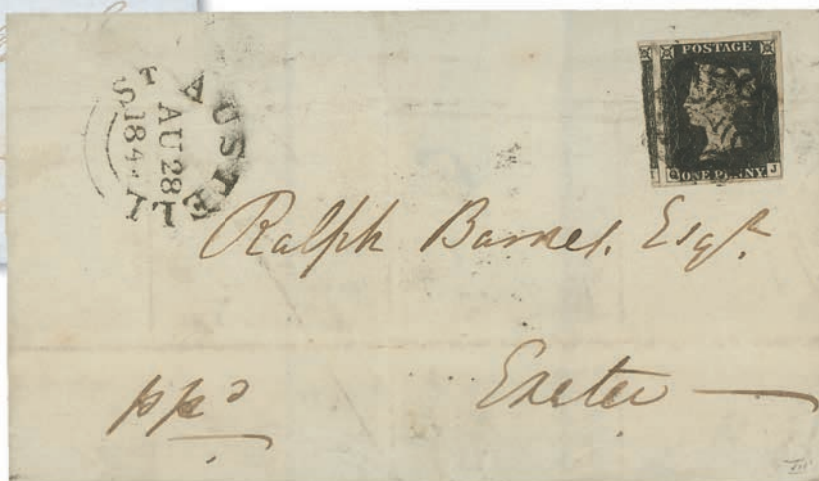 ST AUSTELL
AU 28
POSTAGE
ONE PENNY J
Ralph Barnes. Esqr.
ppd Exeter